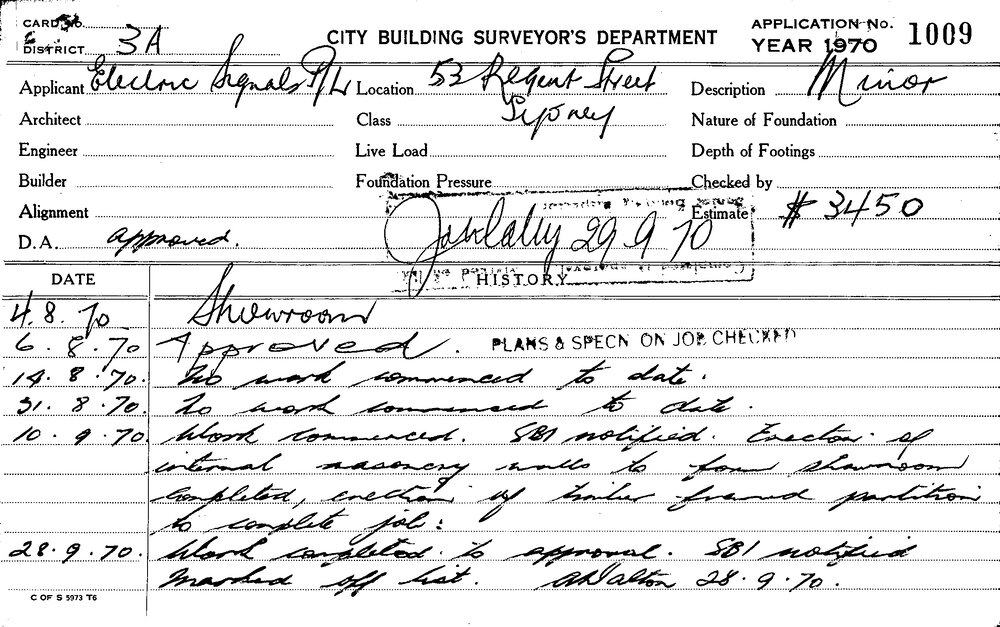 CARD No.
DISTRICT 3A
CITY BUILDING SURVEYOR'S DEPARTMENT
APPLICATION No. 1009
YEAR 1970
Applicant Electric Signals P/L Location 53 Regent Street Description Minor
Architect Class Sydney Nature of Foundation
Engineer Live Load Depth of Footings
Builder Foundation Pressure Checked by
Alignment Estimate $3450
29 9 70
D.A. approved.
DATE HISTORY
4.8.70 Showroom
6.8.70 Approved. PLANS & SPECN ON JOB CHECKED
14.8.70. No work commenced to date.
31.8.70. No work commenced to date.
10.9.70. Work commenced. SBI notified. Erection of
internal masonry walls to form showroom
completed, erection of timber framed partition
to complete job:
28.9.70. Work completed to approval. SBI notified
Marked off list. 28.9.70.
C OF S 5973 T6